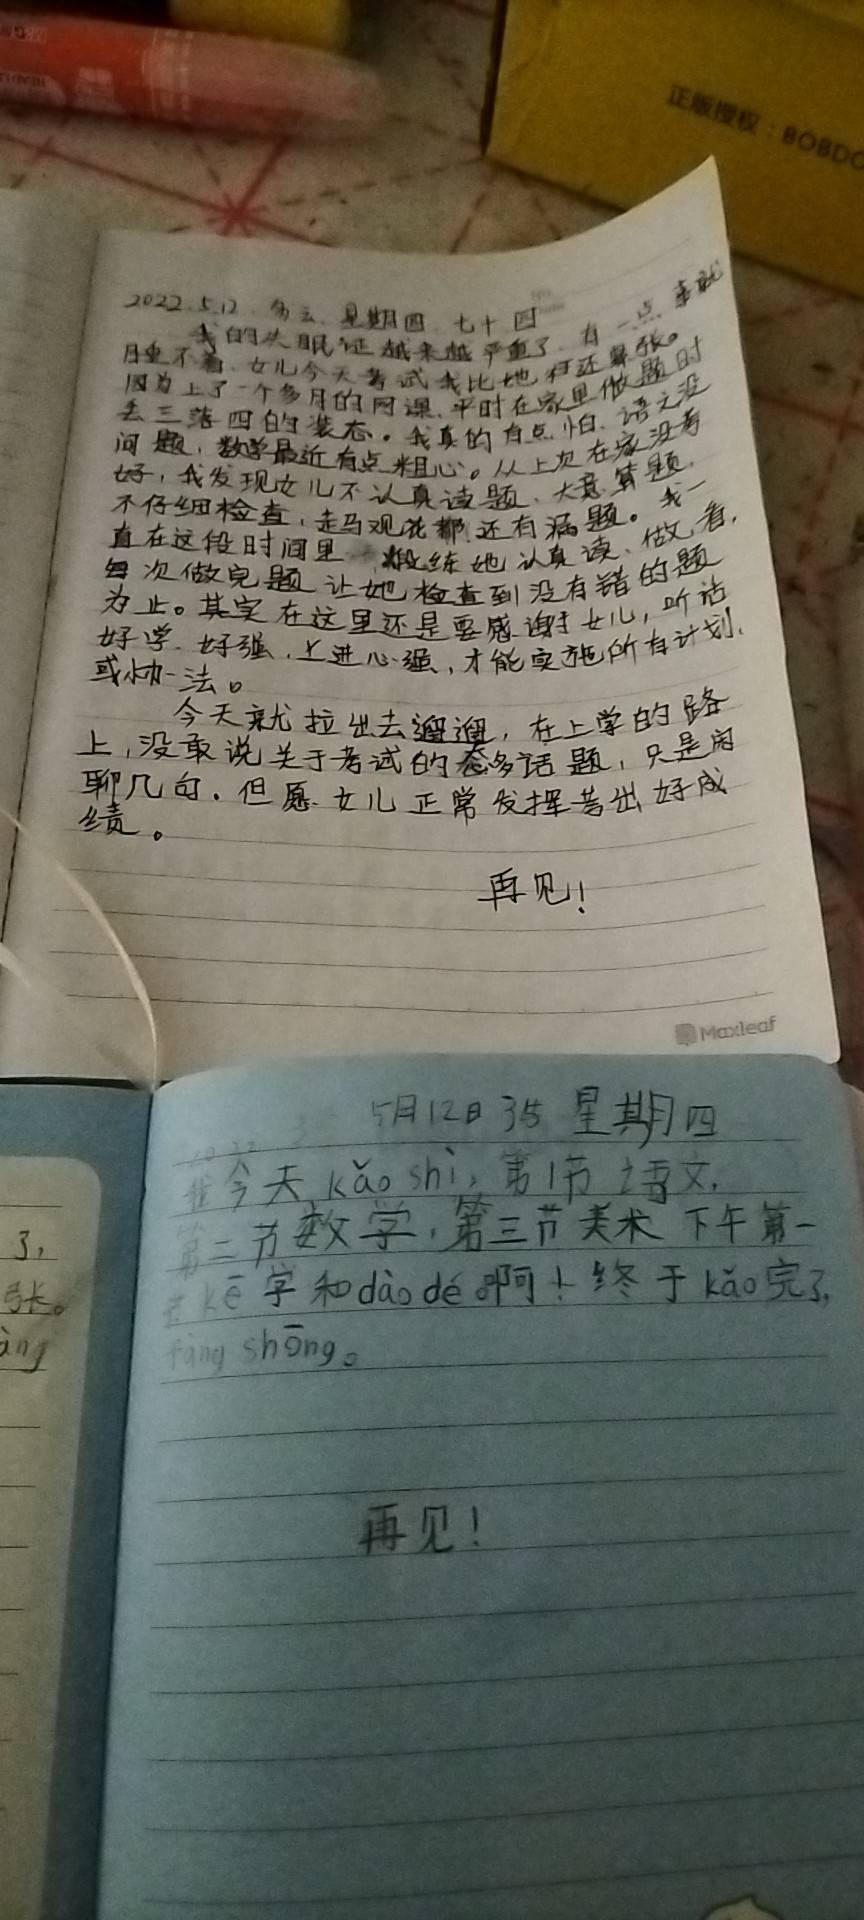 正版授权：BOBDO
2022.5.12 多云 星期四 七十四
我的失眠证越来越严重了，有一点亲就
睡不着，女儿今天考试我比她还紧张。
因为上了一个多月的网课，平时在家里做题时
丢三落四的装态。我真的有点怕，语文没
问题，数学最近有点粗心。从上次在家没考
好，我发现女儿不认真读题、大意算题，
不仔细检查，走马观花都还有漏题。我一
直在这段时间里 煅练她认真读、做、看，
每次做完题让她检查到没有错的题
为止。其实在这里还是要感谢女儿，听话
好学、好强，上进心强，才能实施所有计划，
或办法。
今天就拉出去遛遛，在上学的路
上，没敢说关于考试的太多话题，只是闲
聊几句，但愿女儿正常发挥考出好成
绩。
再见！
Maxleaf
5月12日 35 星期四
今天kǎo shì，第1节语文，
第二节数学，第三节美术 下午第一
kē学和dào dé啊！终于kǎo完了，
fàng shōng。
再见！
了，
张。
àng